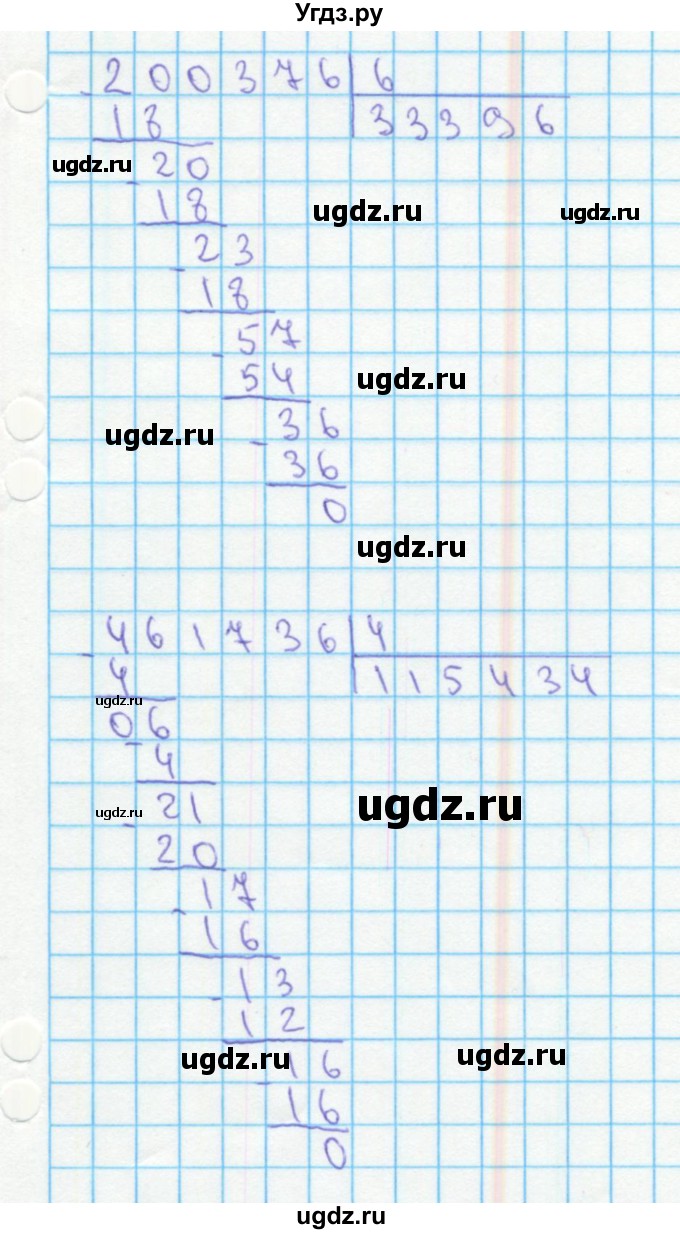 Угдз.ру
200376 | 6
18 | 33396
ugdz.ru
20
18
ugdz.ru
ugdz.ru
23
18
57
54
ugdz.ru
ugdz.ru
36
36
0
ugdz.ru
461736 | 4
4 | 115434
ugdz.ru
06
4
ugdz.ru
ugdz.ru
21
20
17
16
13
12
ugdz.ru
ugdz.ru
16
16
0
ugdz.ru